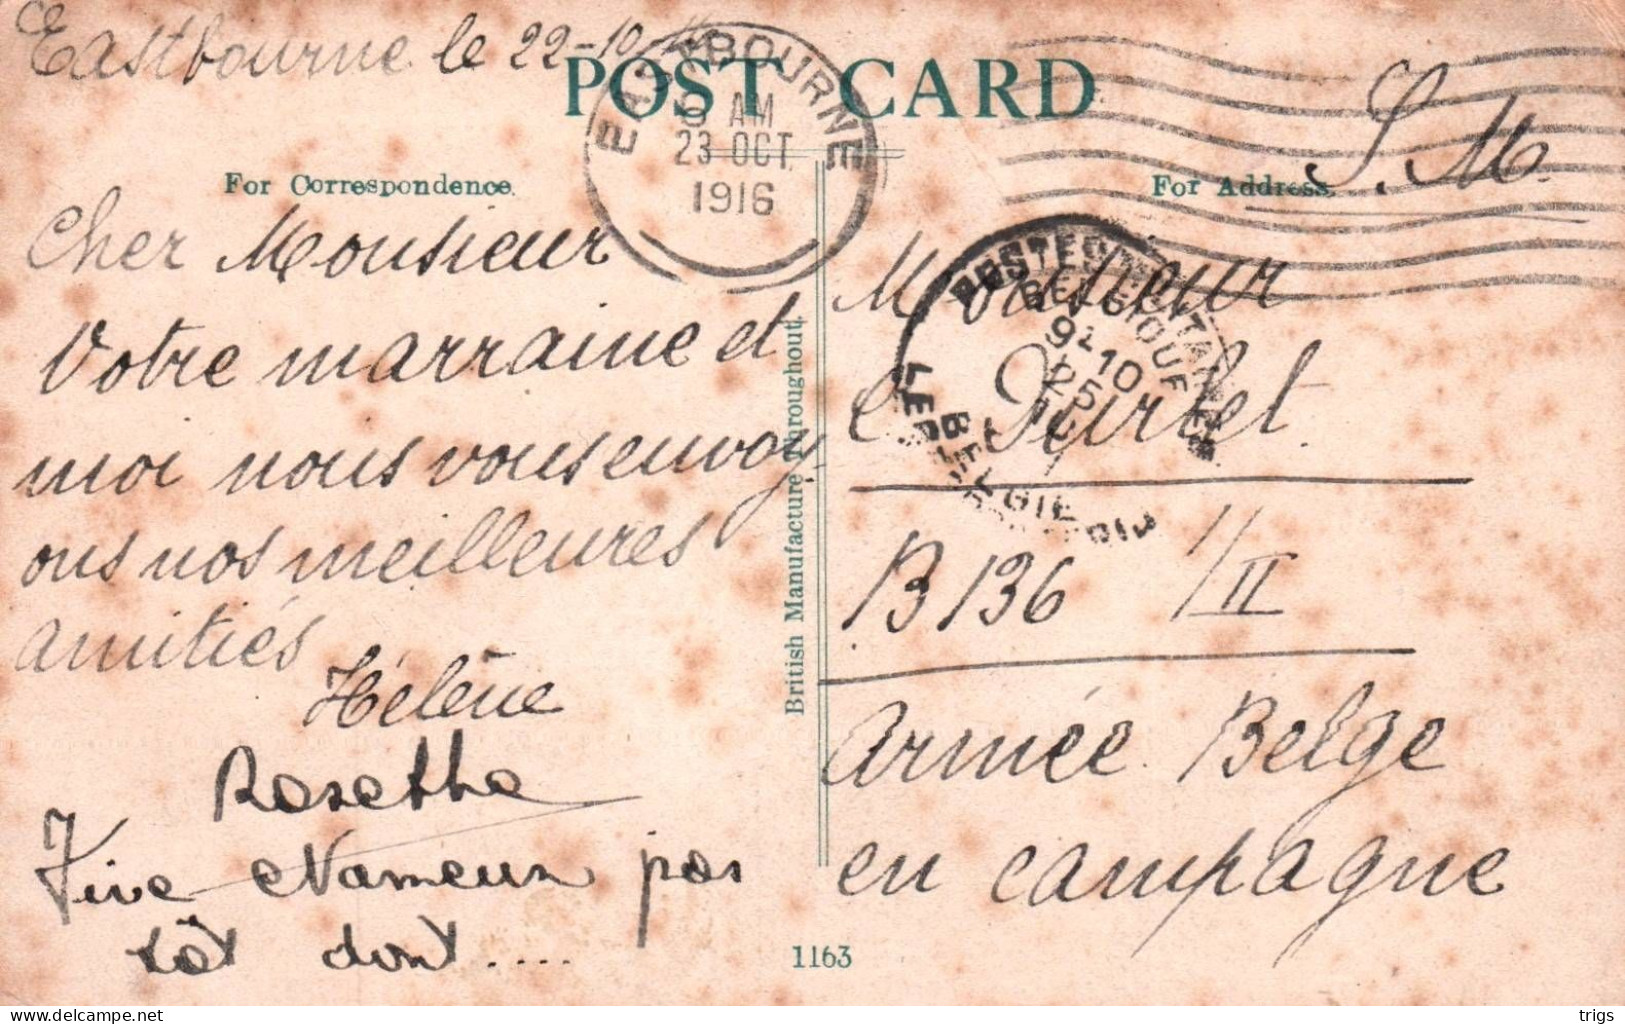 Eastbourne le 22-10
POST CARD
EASTBOURNE
AM
23 OCT
1916
S. M.
For Correspondence.
For Address.
Cher Monsieur
Votre marraine et
moi nous vous envoy-
ons nos meilleures
amitiés
Hélène
Rosette
Vive Nameur pas
tôt dont.....
British Manufacture Throughout.
Monsieur
C.
B 136 1/II
Armée Belge
en campagne
BELGIQUE
10
25
1163
Visit Delcampe.net
trigs